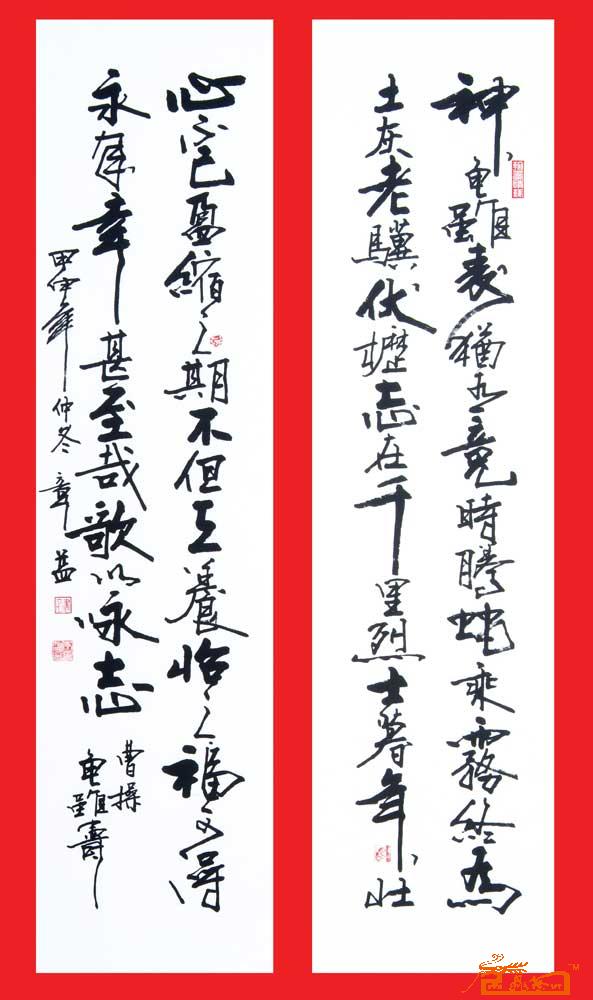 神龜雖壽猶有竟時騰蛇乘霧終為
土灰老驥伏櫪志在千里烈士暮年壯
心不已盈縮之期不但在養怡之福可得
永年幸甚至哉歌以咏志
曹操
龜雖壽
甲申年仲冬章益